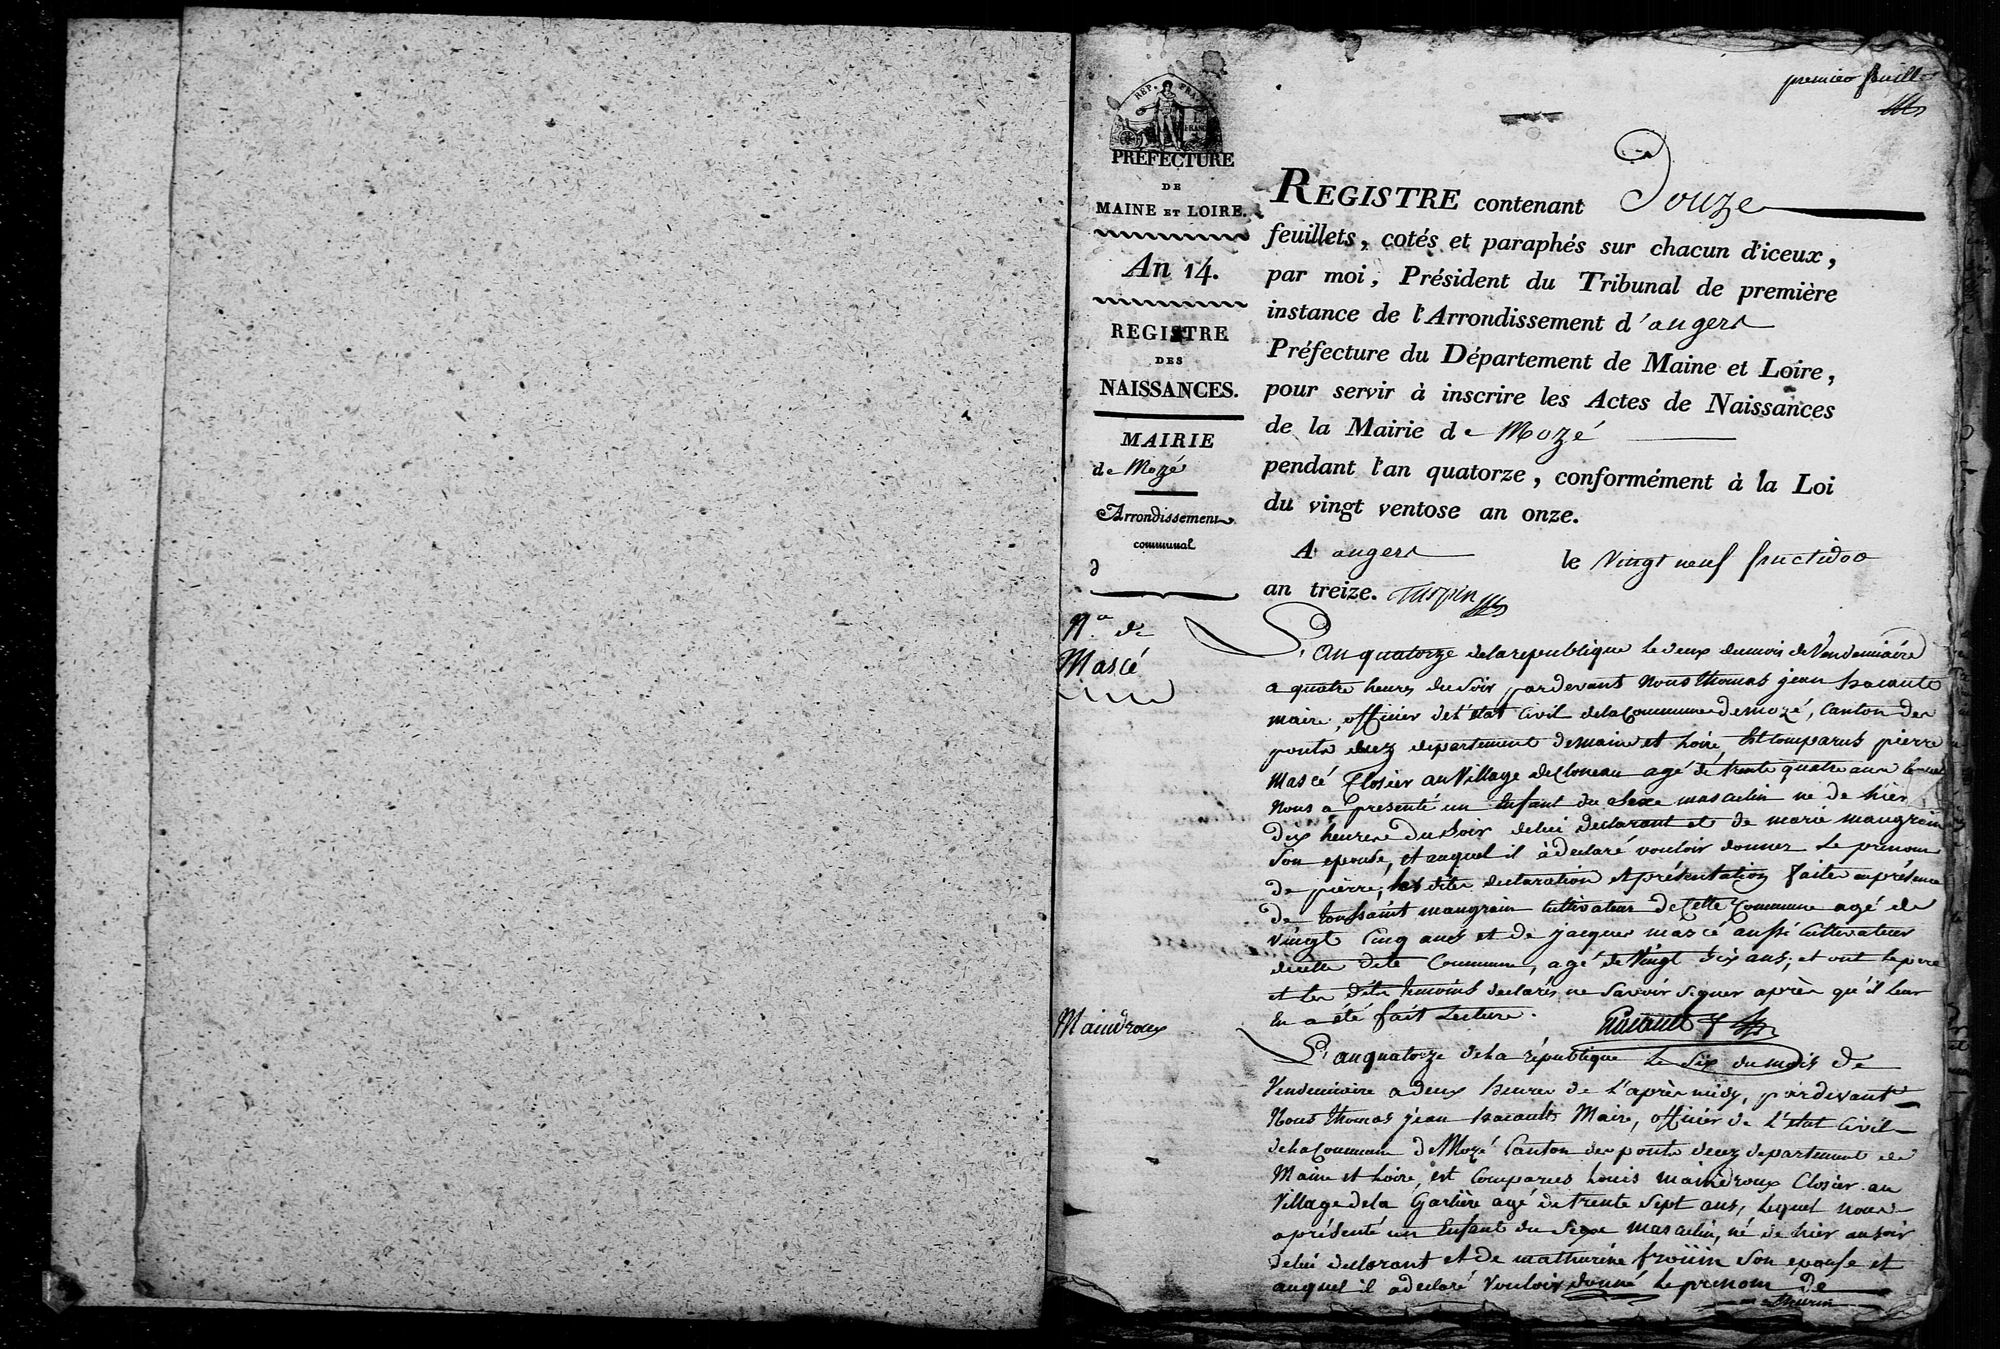 premier feuillet
REP. FRA
PRÉFECTURE
DE
MAINE ET LOIRE.
An 14.
REGISTRE
DES
NAISSANCES.
MAIRIE
de Mozé
Arrondissement
communal
d
REGISTRE contenant Douze
feuillets, cotés et paraphés sur chacun d'iceux,
par moi, Président du Tribunal de première
instance de l'Arrondissement d'angers
Préfecture du Département de Maine et Loire,
pour servir à inscrire les Actes de Naissances
de la Mairie de Mozé
pendant l'an quatorze, conformément à la Loi
du vingt ventose an onze.
A angers le vingt neuf fructidor
an treize. Turpin
N.ce de
Mascé
L'an quatorze de la republique le deux du mois de Vendemiaire
a quatre heures du Soir pardevant Nous thomas jean hacault
maire, officier de l'état Civil de la Commune de mozé, Canton des
ponts decez departement de maine et Loire, Est Comparus pierre
Mascé Closier au Village de Cloneau agé de trente quatre ans lequel
Nous a présenté un Enfant du Sexe masculin né de hier
dix heures du Soir de lui declarant et de marie maugrain
Son epouse, et auquel il à declaré vouloir donner le prenom
de pierre, les dites declaration et présentation faites en présence
de toussaint maugrain Cultivateur de Cette Commune agé de
Vingt Cinq ans et de jacques mascé aussi Cultivateur
dicelle dite Commune, agé de Vingt Six ans, et ont le pere
et les dits temoins declarés ne Savoir Signer après qu'il leur
En a été fait Lecture. hacault
Maindroux
L'an quatorze de la république le Six du mois de
Vendemiaire a deux heures de l'après midy, pardevant
Nous thomas jean hacault Maire, officier de l'état Civil
de la Commune de Mozé Canton des ponts decez departement de
Maine et Loire, est Comparus Louis maindroux Closier au
Village de la Garlière agé de trente Sept ans, Lequel nous
a présenté un Enfant du Sexe masculin, né de hier au soir
de lui declarant et de mathurine froüin Son epouse et
auquel il a declaré Vouloir donné le prenom de